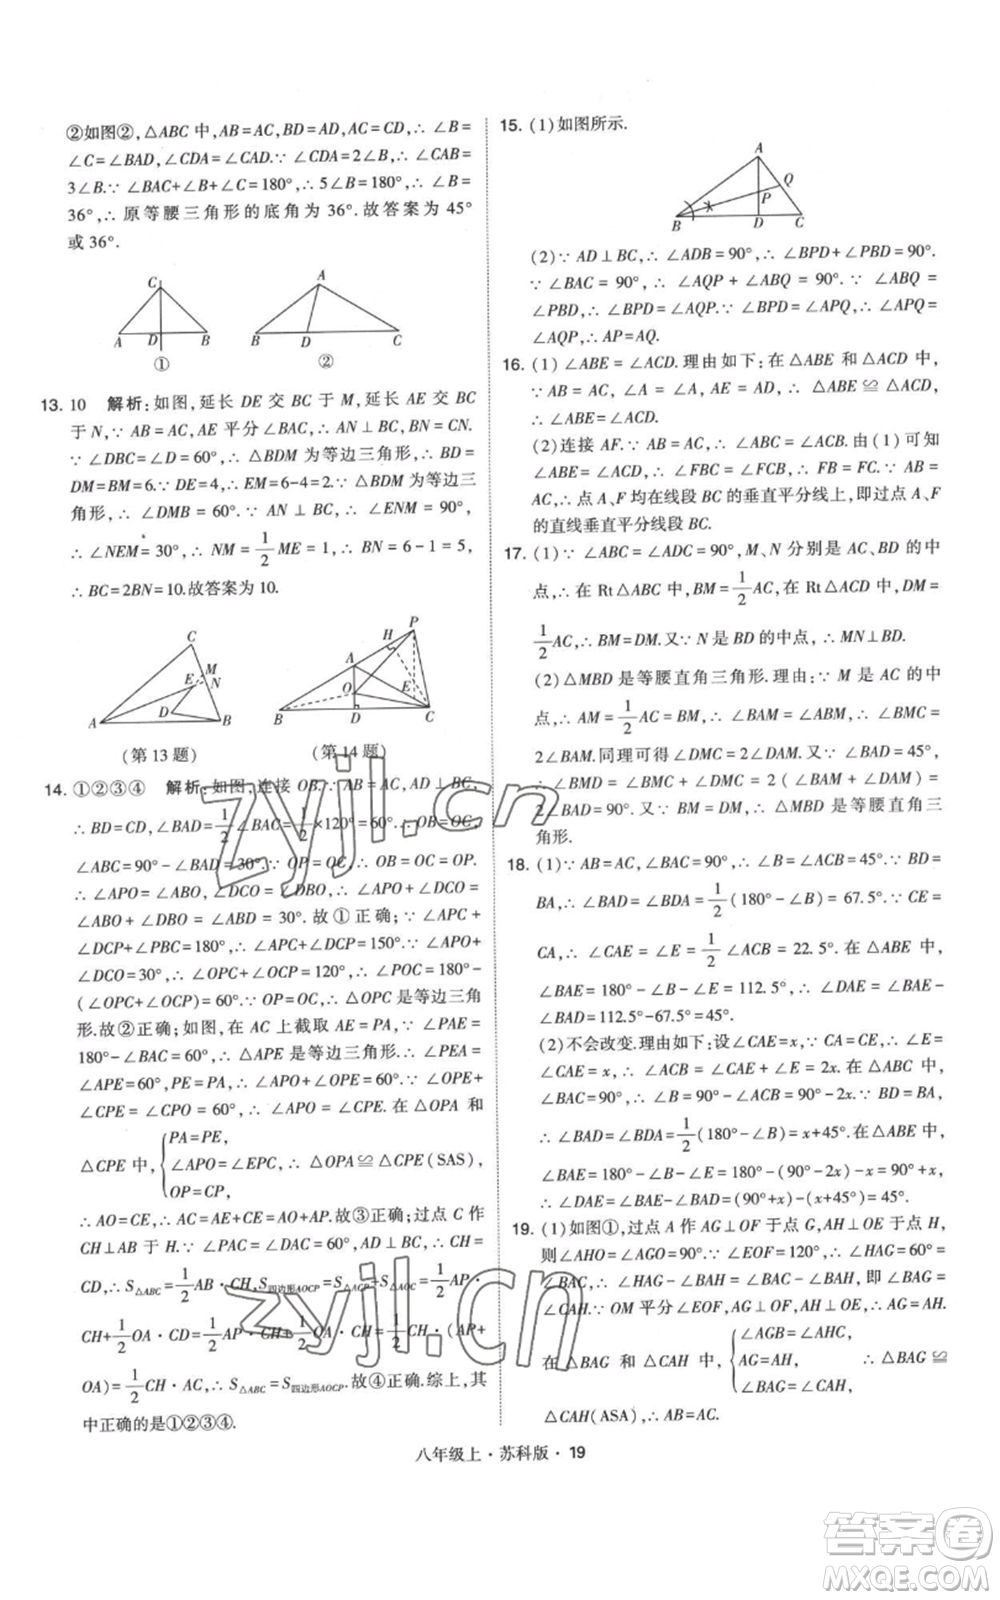 ②如图②,△ABC 中,AB=AC,BD=AD,AC=CD,∴ ∠B=
∠C=∠BAD,∠CDA=∠CAD.∵ ∠CDA=2∠B,∴ ∠CAB=
3∠B.∵ ∠BAC+∠B+∠C=180°,∴ 5∠B=180°,∴ ∠B=
36°,∴ 原等腰三角形的底角为 36°.故答案为 45°
或 36°.
C
A
A D B
B D C
① ②
13. 10 解析:如图,延长 DE 交 BC 于 M,延长 AE 交 BC
于 N,∵ AB=AC,AE 平分∠BAC,∴ AN⊥BC,BN=CN.
∵ ∠DBC=∠D=60°,∴ △BDM 为等边三角形,∴ BD=
DM=BM=6.∵ DE=4,∴ EM=6-4=2.∵ △BDM 为等边三
角形,∴ ∠DMB=60°.∵ AN⊥BC,∴ ∠ENM=90°,
∴ ∠NEM=30°,∴ NM=1/2 ME=1,∴ BN=6-1=5,
∴ BC=2BN=10.故答案为 10.
C
M
E N
D
A B
P
H
A
O E
B D C
(第 13 题) (第 14 题)
14. ①②③④ 解析:如图,连接 OB.∵ AB=AC,AD⊥BC,
∴ BD=CD,∠BAD=1/2∠BAC=1/2×120°=60°,∴ OB=OC,
∠ABC=90°-∠BAD=30°.∵ OP=OC,∴ OB=OC=OP.
∴ ∠APO=∠ABO,∠DCO=∠DBO,∴ ∠APO+∠DCO=
∠ABO+∠DBO=∠ABD=30°.故①正确;∵ ∠APC+
∠DCP+∠PBC=180°,∴ ∠APC+∠DCP=150°.∵ ∠APO+
∠DCO=30°,∴ ∠OPC+∠OCP=120°,∴ ∠POC=180°-
(∠OPC+∠OCP)=60°.∵ OP=OC,∴ △OPC 是等边三角
形.故②正确;如图,在 AC 上截取 AE=PA,∵ ∠PAE=
180°-∠BAC=60°,∴ △APE 是等边三角形,∴ ∠PEA=
∠APE=60°,PE=PA,∴ ∠APO+∠OPE=60°.∵ ∠OPE+
∠CPE=∠CPO=60°,∴ ∠APO=∠CPE.在△OPA 和
△CPE 中,{PA=PE, ∠APO=∠EPC, OP=CP, ∴ △OPA≌△CPE(SAS),
∴ AO=CE,∴ AC=AE+CE=AO+AP.故③正确;过点 C 作
CH⊥AB 于 H.∵ ∠PAC=∠DAC=60°,AD⊥BC,∴ CH=
CD,∴ S△ABC=1/2AB·CH,S四边形AOCP=S△ACP+S△AOC=1/2AP·
CH+1/2OA·CD=1/2AP·CH+1/2OA·CH=1/2CH·(AP+
OA)=1/2CH·AC,∴ S△ABC=S四边形AOCP.故④正确.综上,其
中正确的是①②③④.
15. (1)如图所示.
A
Q
P
B D C
(2)∵ AD⊥BC,∴ ∠ADB=90°,∴ ∠BPD+∠PBD=90°.
∵ ∠BAC=90°,∴ ∠AQP+∠ABQ=90°.∵ ∠ABQ=
∠PBD,∴ ∠BPD=∠AQP.∵ ∠BPD=∠APQ,∴ ∠APQ=
∠AQP,∴ AP=AQ.
16. (1)∠ABE=∠ACD.理由如下:在△ABE 和△ACD 中,
∵ AB=AC,∠BAE=∠CAD,AE=AD,∴ △ABE≌△ACD,
∴ ∠ABE=∠ACD.
(2)连接 AF.∵ AB=AC,∴ ∠ABC=∠ACB.由(1)可知
∠ABE=∠ACD,∴ ∠FBC=∠FCB,∴ FB=FC.∵ AB=
AC,∴ 点 A、F 均在线段 BC 的垂直平分线上,即过点 A、F
的直线垂直平分线段 BC.
17. (1)∵ ∠ABC=∠ADC=90°,M、N 分别是 AC、BD 的中
点,∴ 在 Rt△ABC 中,BM=1/2AC,在 Rt△ACD 中,DM=
1/2AC,∴ BM=DM.又∵ N 是 BD 的中点,∴ MN⊥BD.
(2)△MBD 是等腰直角三角形.理由:∵ M 是 AC 的中
点,∴ AM=1/2AC=BM,∴ ∠BAM=∠ABM,∴ ∠BMC=
2∠BAM.同理可得∠DMC=2∠DAM.∵ ∠BAD=45°,
∴ ∠BMD=∠BMC+∠DMC=2∠BAM+2∠DAM=
2∠BAD=90°.又∵ MB=MD,∴ △MBD 是等腰直角三
角形.
18. (1)∵ AB=AC,∠BAC=90°,∴ ∠B=∠ACB=45°.∵ BD=
BA,∴ ∠BAD=∠BDA=1/2(180°-∠B)=67.5°.∵ CE=
CA,∴ ∠CAE=∠E=1/2∠ACB=22.5°.在△ABE 中,
∠BAE=180°-∠B-∠E=112.5°,∴ ∠DAE=∠BAE-
∠BAD=112.5°-67.5°=45°.
(2)不会改变.理由如下:设∠CAE=x,∵ CA=CE,∴ ∠E=
∠CAE=x,∴ ∠ACB=∠CAE+∠E=2x.在△ABC 中,
∠BAC=90°,∴ ∠B=90°-∠ACB=90°-2x.∵ BD=BA,
∴ ∠BAD=∠BDA=1/2(180°-∠B)=x+45°.在△ABE 中,
∠BAE=180°-∠B-∠E=180°-(90°-2x)-x=90°+x,
∴ ∠DAE=∠BAE-∠BAD=(90°+x)-(x+45°)=45°.
19. (1)如图①,过点 A 作 AG⊥OF 于点 G,AH⊥OE 于点 H,
则∠AHO=∠AGO=90°.∵ ∠EOF=120°,∴ ∠HAG=60°=
∠BAC,∴ ∠HAG-∠BAH=∠BAC-∠BAH,即∠BAG=
∠CAH.∵ OM 平分∠EOF,AG⊥OF,AH⊥OE,∴ AG=AH.
在△BAG 和△CAH 中,{∠AGB=∠AHC, AG=AH, ∠BAG=∠CAH, ∴ △BAG≌
△CAH(ASA),∴ AB=AC.
八年级上·苏科版·19
zyjl.cn
zyjl.cn
答案卷
MXQE.COM